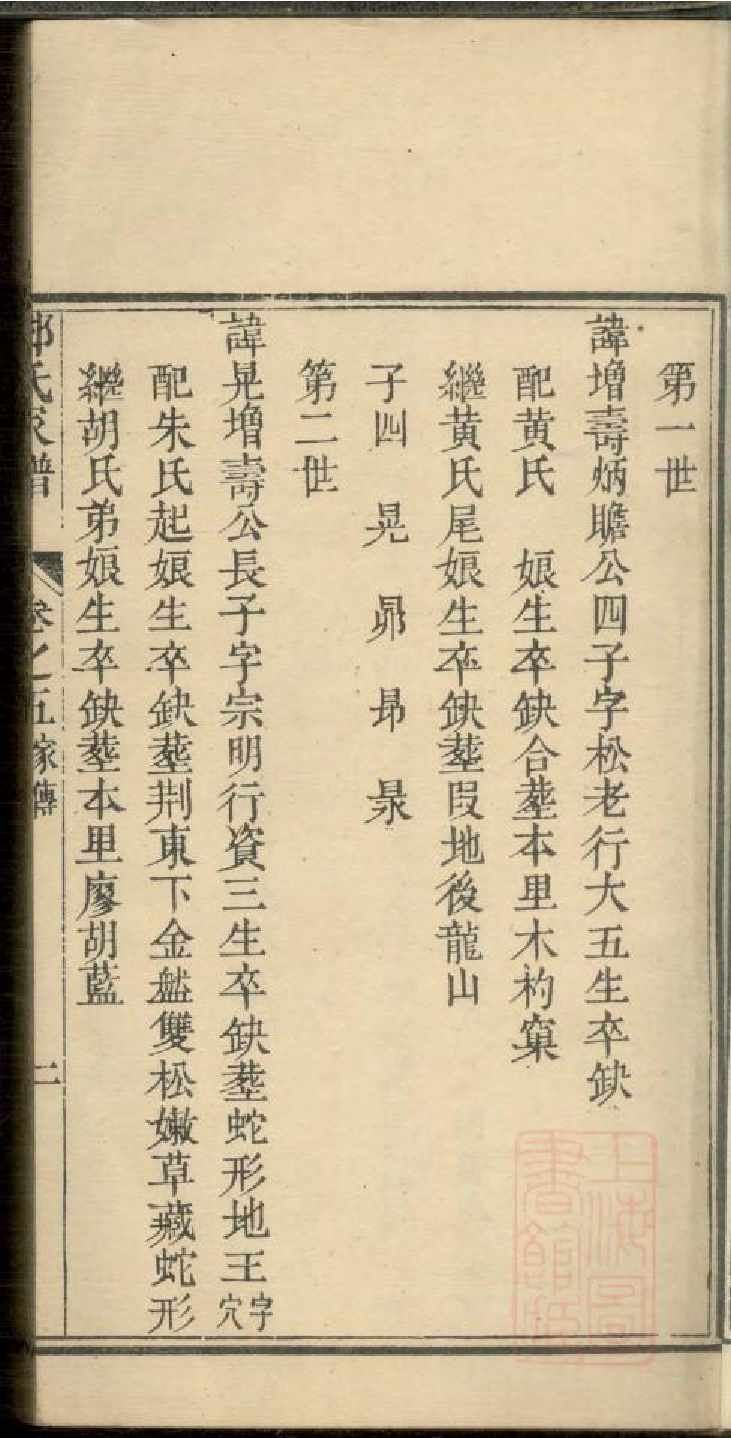 第一世
諱增壽炳瞻公四子字松老行大五生卒缺
配黄氏　娘生卒缺合塟本里木杓窠
繼黄氏尾娘生卒缺塟叚地後龍山
子四　晃　昴　昻　㫧
第二世
諱晃增壽公長子字宗明行資三生卒缺塟蛇形地王字穴
配朱氏起娘生卒缺塟荆東下金盤雙松嫩草藏蛇形
繼胡氏弟娘生卒缺塟本里廖胡藍
氏家譜　卷之五　家傳　二
上海圖書館藏